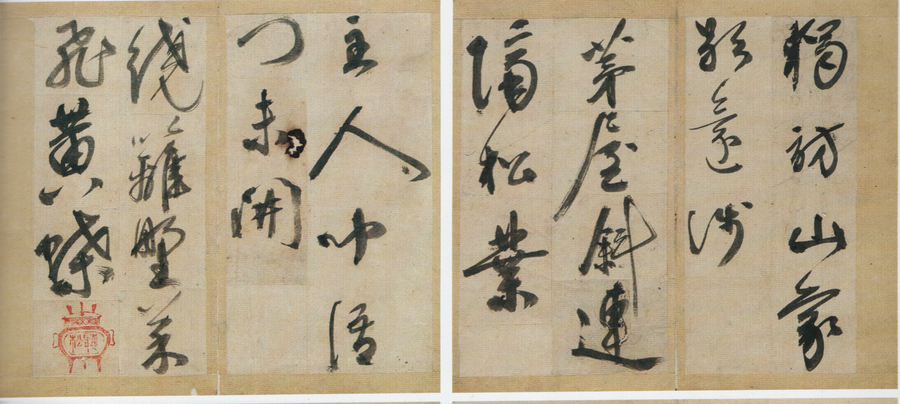 獨訪山家
歇還涉
茅屋斜連
隔松葉
主人聞語
門未開
繞籬野菜
飛黃蝶